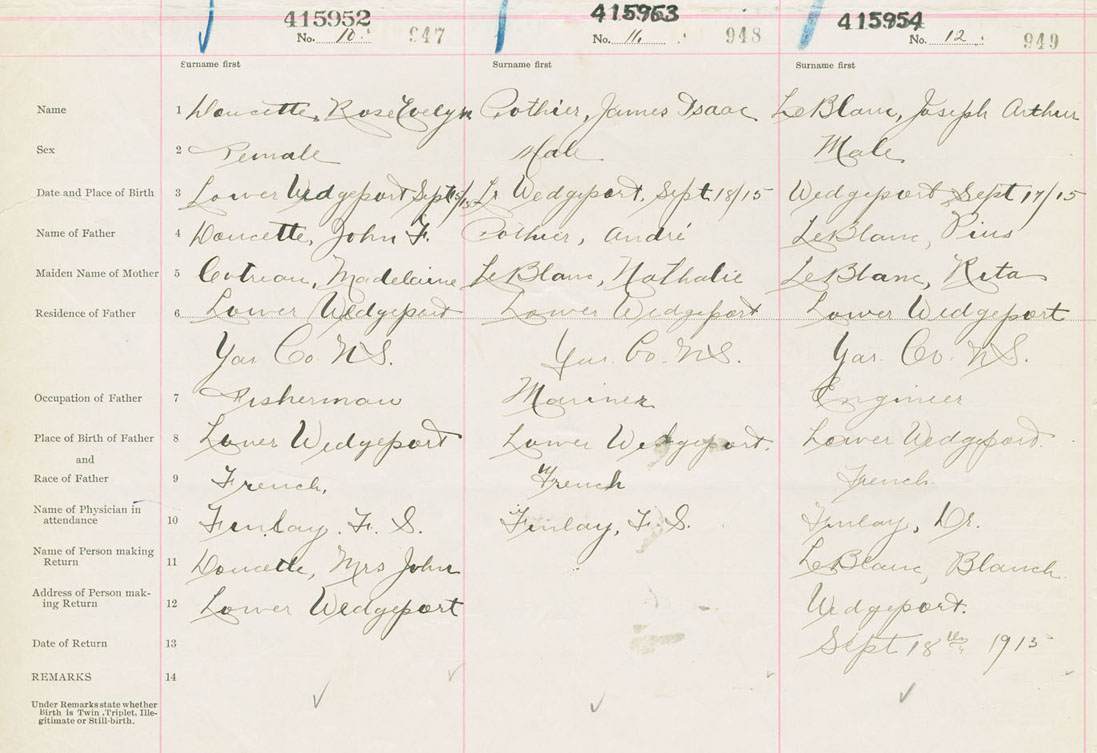 415952 415953 415954
No. 10. 947 No. 11. 948 No. 12. 949
Surname first Surname first Surname first
Name 1 Doucette, Rose Evelyn Pothier, James Isaac LeBlanc, Joseph Arthur
Sex 2 Female Male Male
Date and Place of Birth 3 Lower Wedgeport Sept 15/15 Lr Wedgeport. Sept. 18/15 Wedgeport Sept 17/15
Name of Father 4 Doucette, John F. Pothier, André LeBlanc, Pius
Maiden Name of Mother 5 Cotreau, Madelaine LeBlanc, Nathalie LeBlanc, Rita
Residence of Father 6 Lower Wedgeport Lower Wedgeport Lower Wedgeport
Yar. Co. N.S. Yar. Co. N.S. Yar. Co. N.S.
Occupation of Father 7 Fisherman Mariner Engineer
Place of Birth of Father 8 Lower Wedgeport Lower Wedgeport. Lower Wedgeport.
and
Race of Father 9 French, French French.
Name of Physician in
attendance 10 Finlay. F. S. Finlay, F. S. Finlay, Dr.
Name of Person making
Return 11 Doucette, Mrs John LeBlanc, Blanch.
Address of Person mak-
ing Return 12 Lower Wedgeport Wedgeport.
Date of Return 13 Sept 18th 1915
REMARKS 14
Under Remarks state whether
Birth is Twin, Triplet, Ille-
gitimate or Still-birth.